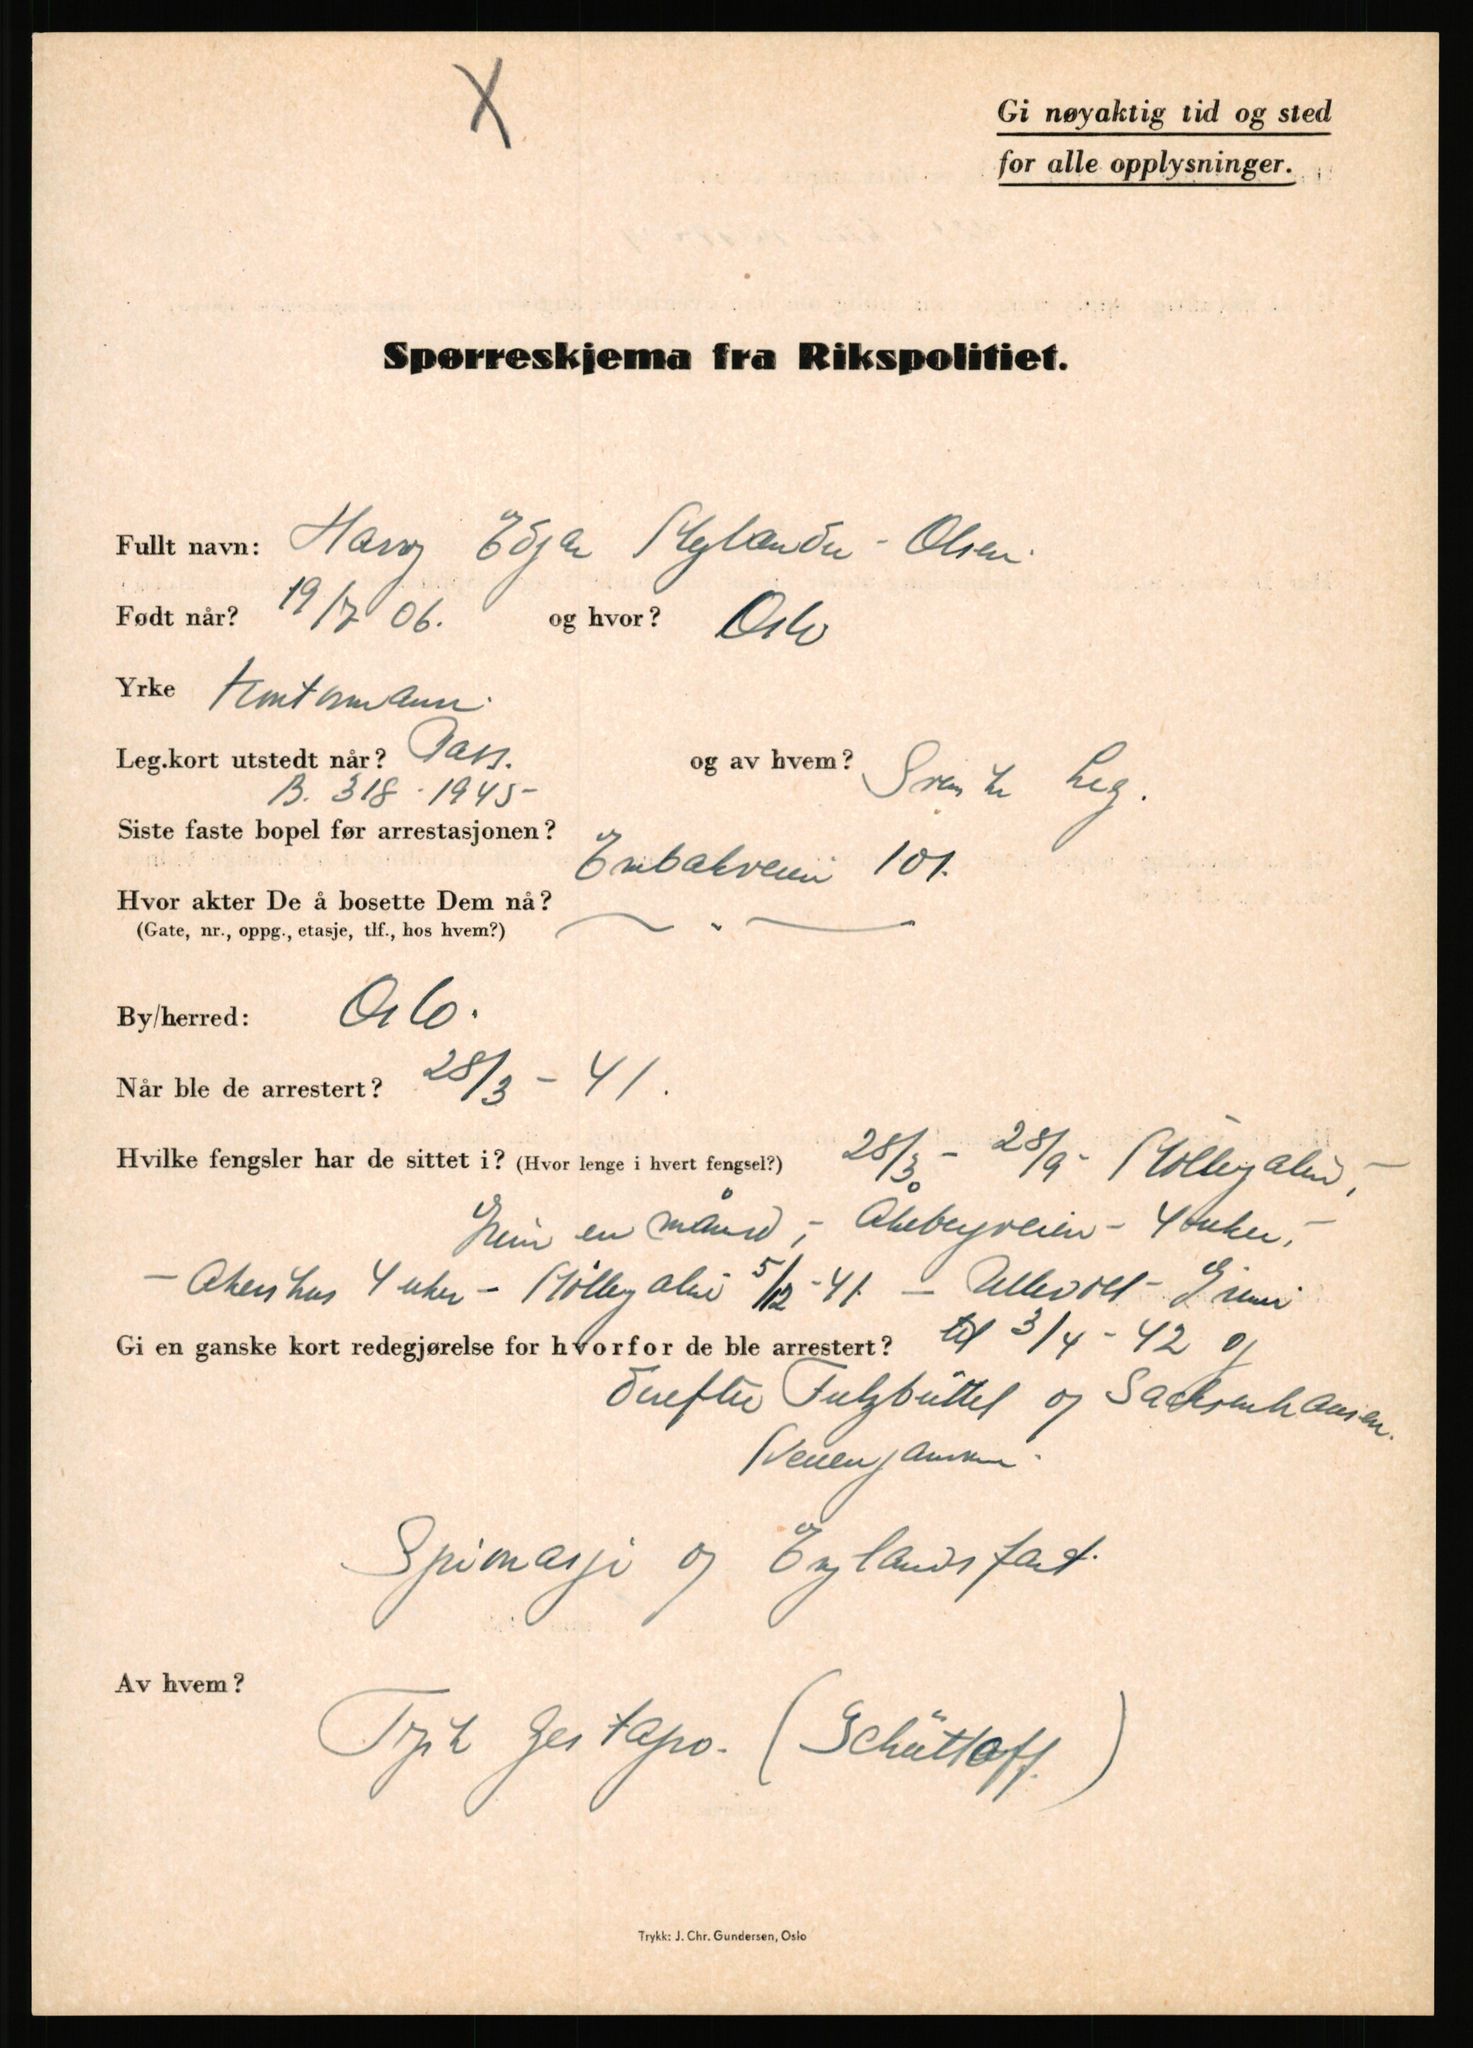 X
Gi nøyaktig tid og sted
for alle opplysninger.
Spørreskjema fra Rikspolitiet.
Fullt navn: Harry Edgar Mylander-Olsen.
Født når? 19/7 06. og hvor? Oslo
Yrke Kontormann.
Leg.kort utstedt når? Pass. og av hvem? Svensk Leg.
B. 318 - 1945-
Siste faste bopel før arrestasjonen? Enebakveien 101.
Hvor akter De å bosette Dem nå? — " —
(Gate, nr., oppg., etasje, tlf., hos hvem?)
By/herred: Oslo.
Når ble de arrestert? 28/3 - 41.
Hvilke fengsler har de sittet i? (Hvor lenge i hvert fengsel?) 28/3 - 28/9 - Møllergaten, -
Grini en måned, - Åkebergveien - 4 uker, -
- Akershus 4 uker - Møllergaten 5/12 - 41. - Ullevål - Grini
Gi en ganske kort redegjørelse for hvorfor de ble arrestert? til 3/4 - 42 og
derefter Fulzbüttel og Sachsenhausen.
Neuengamme.
Spionasje og Englandsfart.
Av hvem?
Tysk Gestapo. (Schüttoff.)
Trykk: J. Chr. Gundersen, Oslo